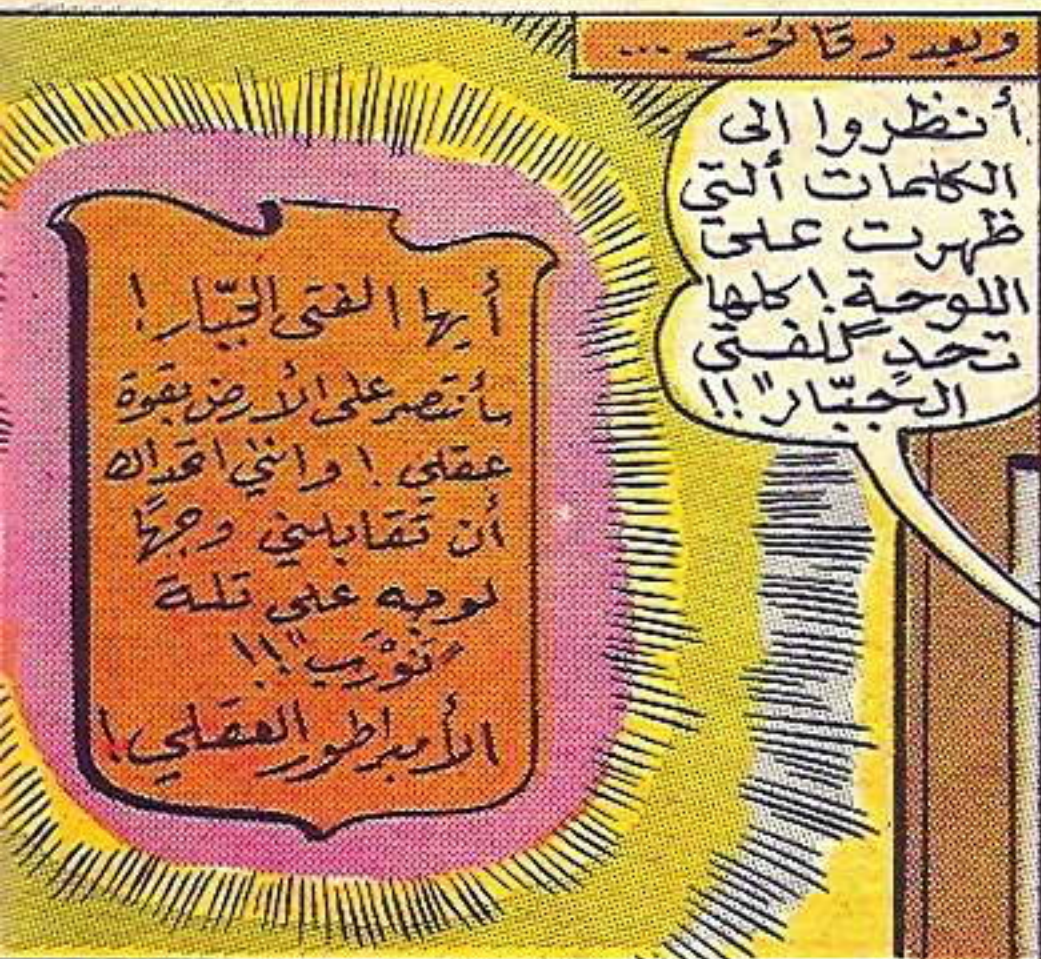 وبعد دقائق ...
أنظروا إلى
الكلمات ألتي
ظهرت على
اللوحة! كلها
تحدٍ "للفتى
الجبّار"!!
أيها الفتى الجبّار!
سأنتصر على الأرض بقوة
عقلي! وانني اتحداك
أن تقابلني وجهًا
لوجه على تلة
"تورب"!!
الأمبراطور العقلي!